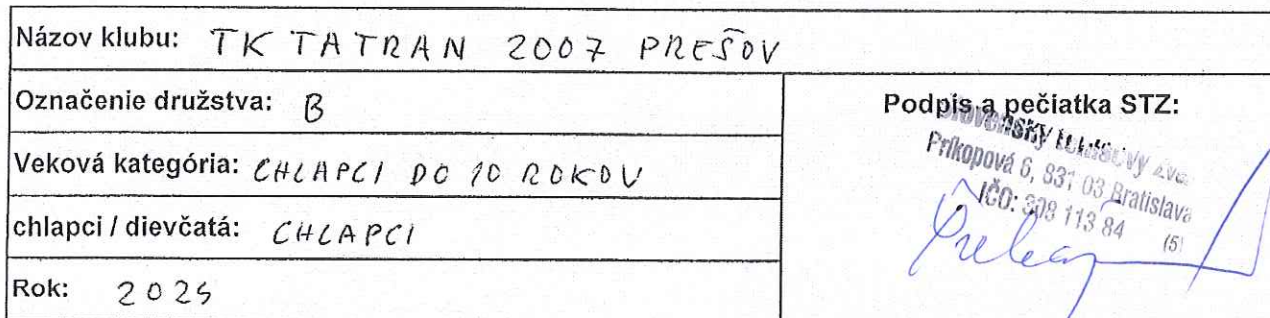 Názov klubu: TK TATRAN 2007 PREŠOV
Označenie družstva: B
Veková kategória: CHLAPCI DO 10 ROKOV
chlapci / dievčatá: CHLAPCI
Rok: 2025
Podpis a pečiatka STZ:
Slovenský tenisový zväz
Príkopová 6, 831 03 Bratislava
IČO: 308 113 84
(5)